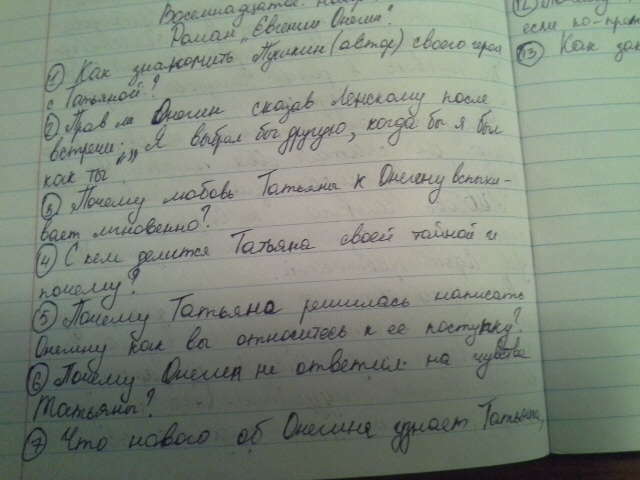 Восемнадцатое
Роман „Евгений Онегин".
① Как знакомить Пушкин (автор) своего героя
с Татьяной?
② Прав ли Онегин сказав Ленскому после
встречи: „Я выбрал бы другую, когда бы я был
как ты"
③ Почему любовь Татьяны к Онегину вспыхи-
вает мгновенно?
④ С кем делится Татьяна своей тайной и
почему?
⑤ Почему Татьяна решилась написать
Онегину как вы относитесь к ее поступку?
⑥ Почему Онегин не ответил на чувства
Татьяны?
⑦ Что нового об Онегине узнает Татьяна,
⑫
если
⑬ Как